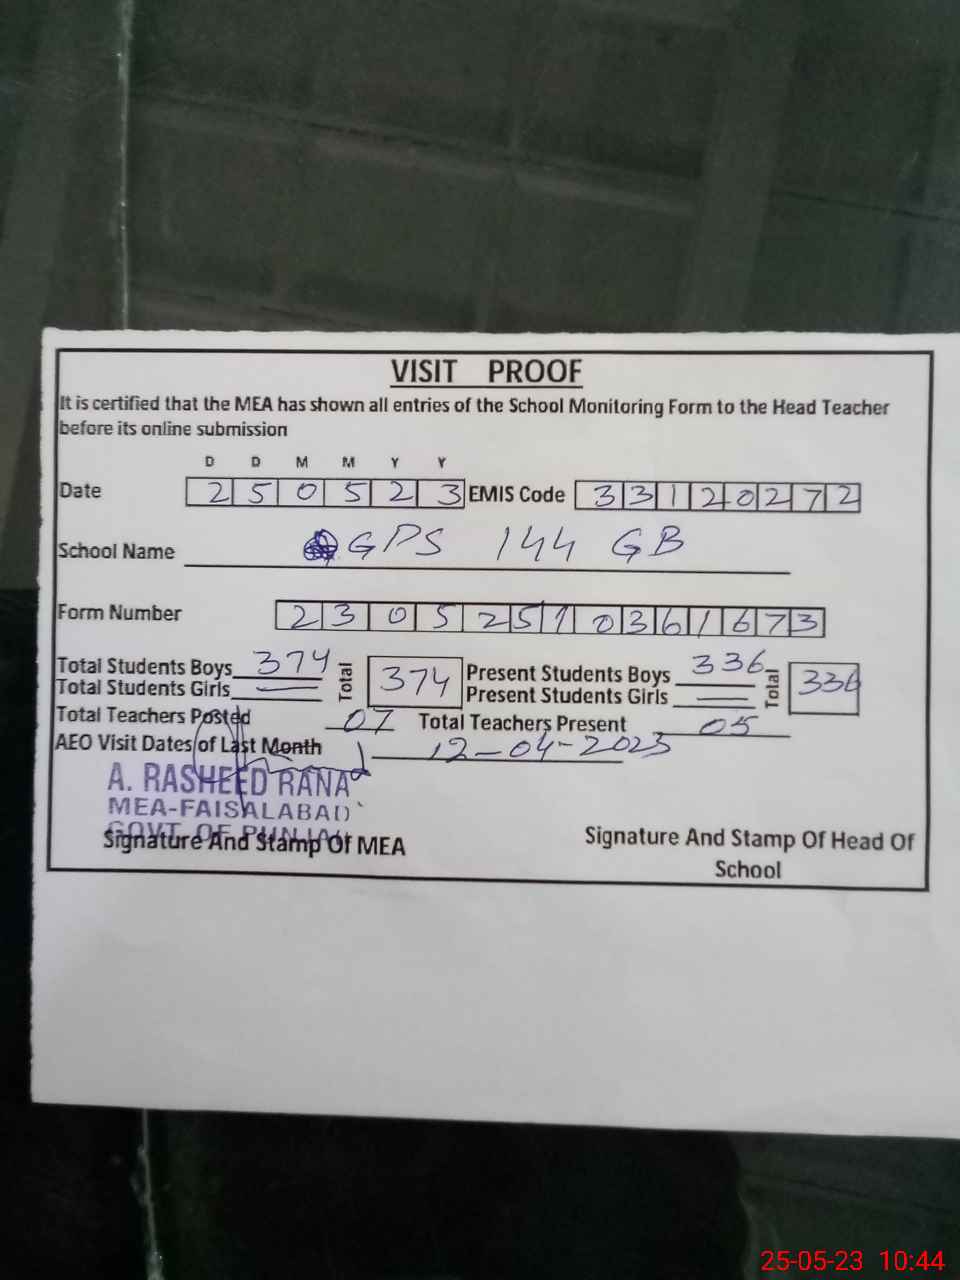 VISIT PROOF
It is certified that the MEA has shown all entries of the School Monitoring Form to the Head Teacher
before its online submission
D D M M Y Y
Date 2 5 0 5 2 3 EMIS Code 3 3 1 2 0 2 7 2
School Name GPS 144 GB
Form Number 2 3 0 5 2 5 1 0 3 6 1 6 7 3
Total Students Boys 374 Total 374 Present Students Boys 336 Total 336
Total Students Girls — Present Students Girls —
Total Teachers Posted 07 Total Teachers Present 05
AEO Visit Dates of Last Month 12-04-2023
A. RASHEED RANA
MEA-FAISALABAD
GOVT. OF PUNJAB
Signature And Stamp Of MEA Signature And Stamp Of Head Of
School
25-05-23 10:44